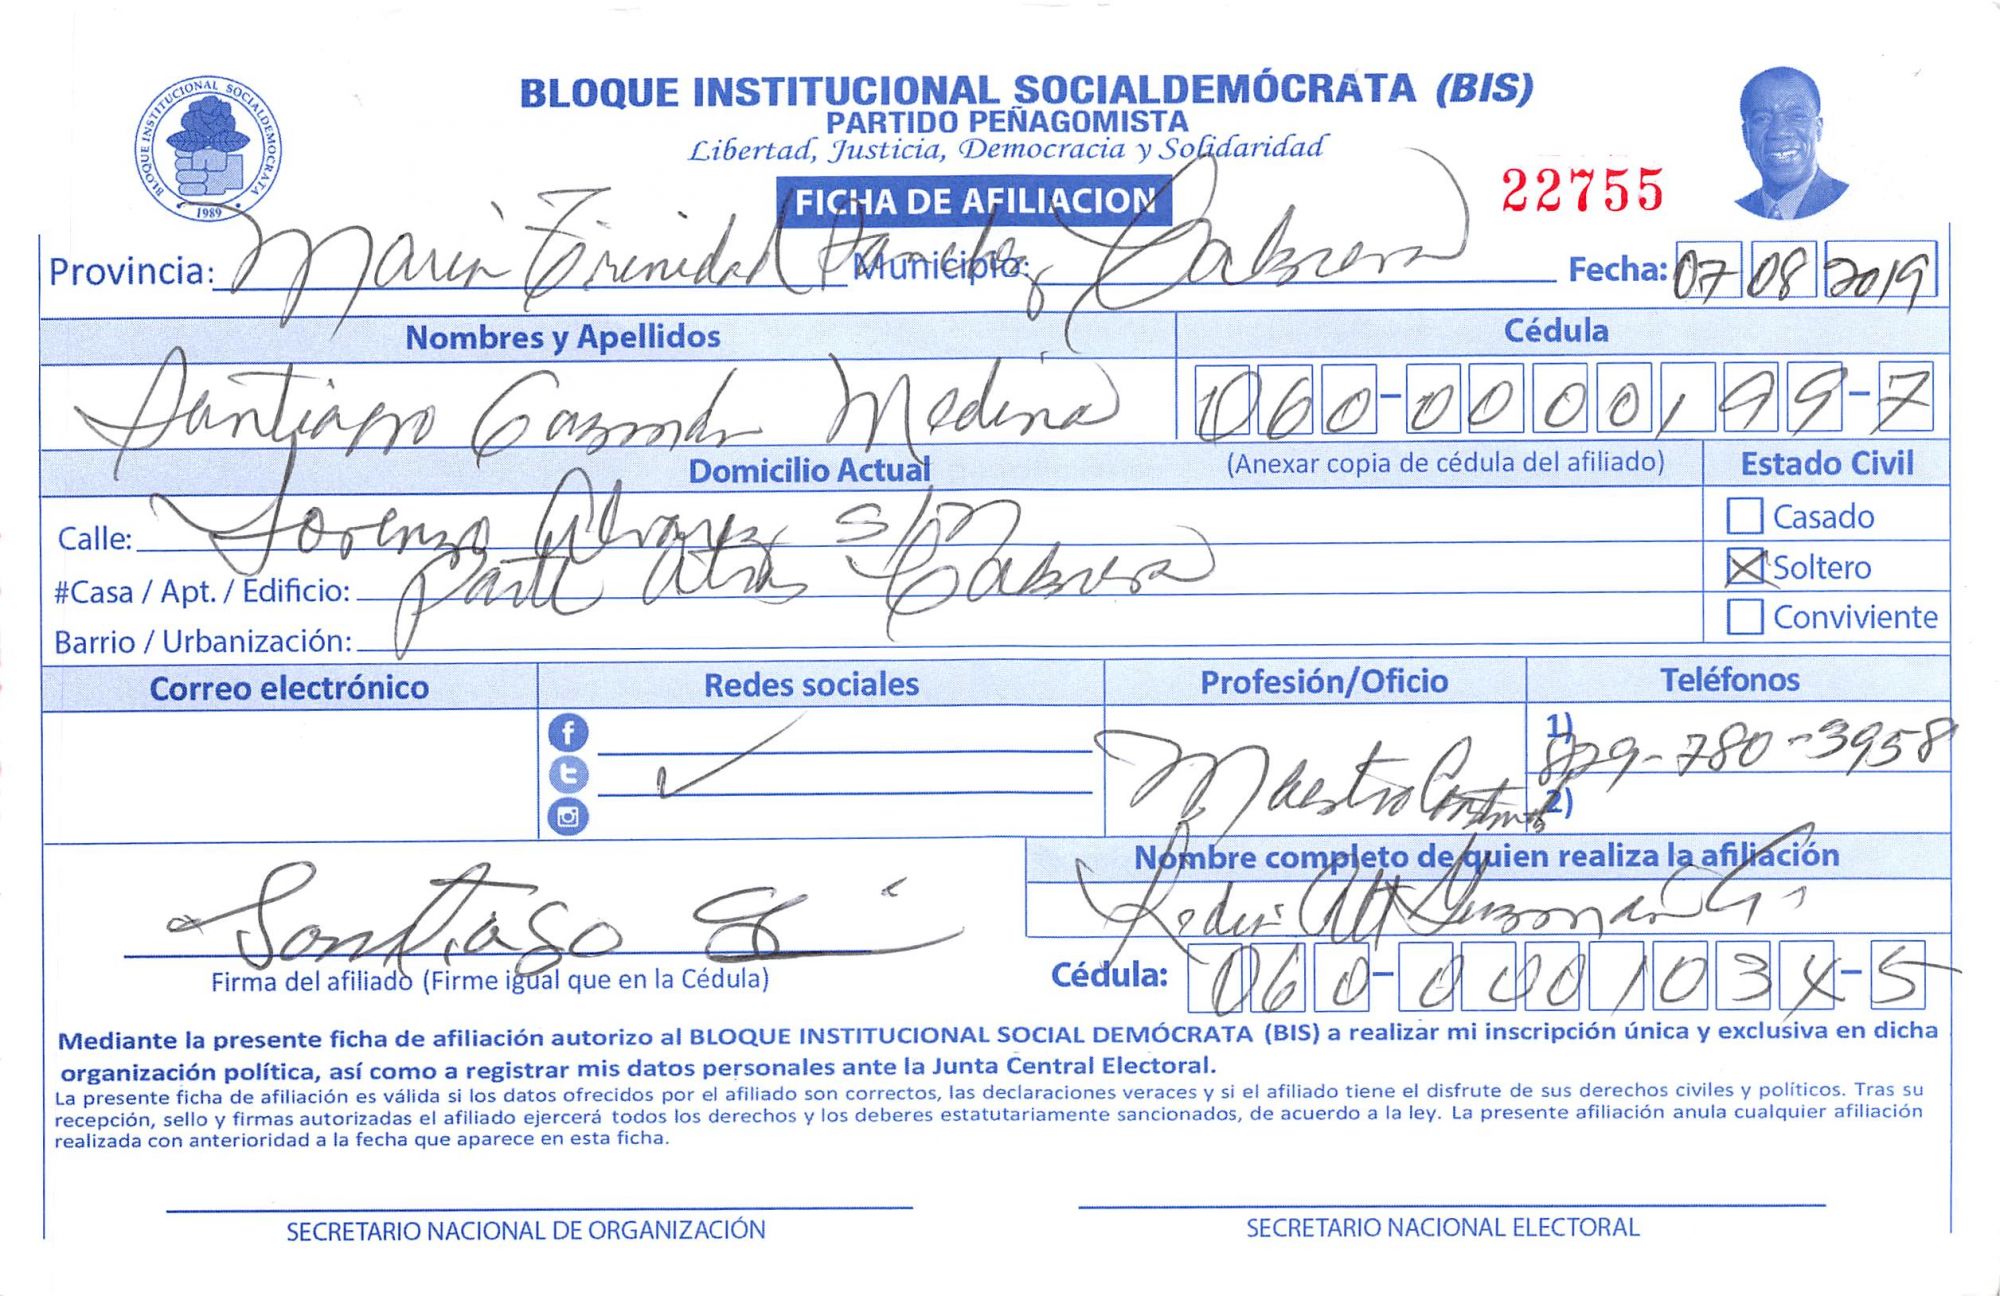 BLOQUE INSTITUCIONAL SOCIALDEMÓCRATA (BIS)
PARTIDO PEÑAGOMISTA
Libertad, Justicia, Democracia y Solidaridad
BLOQUE INSTITUCIONAL SOCIALDEMOCRATA
1989
FICHA DE AFILIACION
22755
Provincia: Maria Trinidad Sanchez Municipio: Cabrera Fecha: 07 08 2019
Nombres y Apellidos Cédula
Santiago Guzmán Medina 060-0000199-7
Domicilio Actual (Anexar copia de cédula del afiliado) Estado Civil
Calle: Lorenzo Alvarez S/N Casado
#Casa / Apt. / Edificio: Parte Atras Cabrera Soltero
Barrio / Urbanización: Conviviente
Correo electrónico Redes sociales Profesión/Oficio Teléfonos
Maestro 1) 829-780-3958
2)
Nombre completo de quien realiza la afiliación
Guzman
Santiago
Firma del afiliado (Firme igual que en la Cédula) Cédula: 060-0001034-5
Mediante la presente ficha de afiliación autorizo al BLOQUE INSTITUCIONAL SOCIAL DEMÓCRATA (BIS) a realizar mi inscripción única y exclusiva en dicha
organización política, así como a registrar mis datos personales ante la Junta Central Electoral.
La presente ficha de afiliación es válida si los datos ofrecidos por el afiliado son correctos, las declaraciones veraces y si el afiliado tiene el disfrute de sus derechos civiles y políticos. Tras su
recepción, sello y firmas autorizadas el afiliado ejercerá todos los derechos y los deberes estatutariamente sancionados, de acuerdo a la ley. La presente afiliación anula cualquier afiliación
realizada con anterioridad a la fecha que aparece en esta ficha.
SECRETARIO NACIONAL DE ORGANIZACIÓN SECRETARIO NACIONAL ELECTORAL